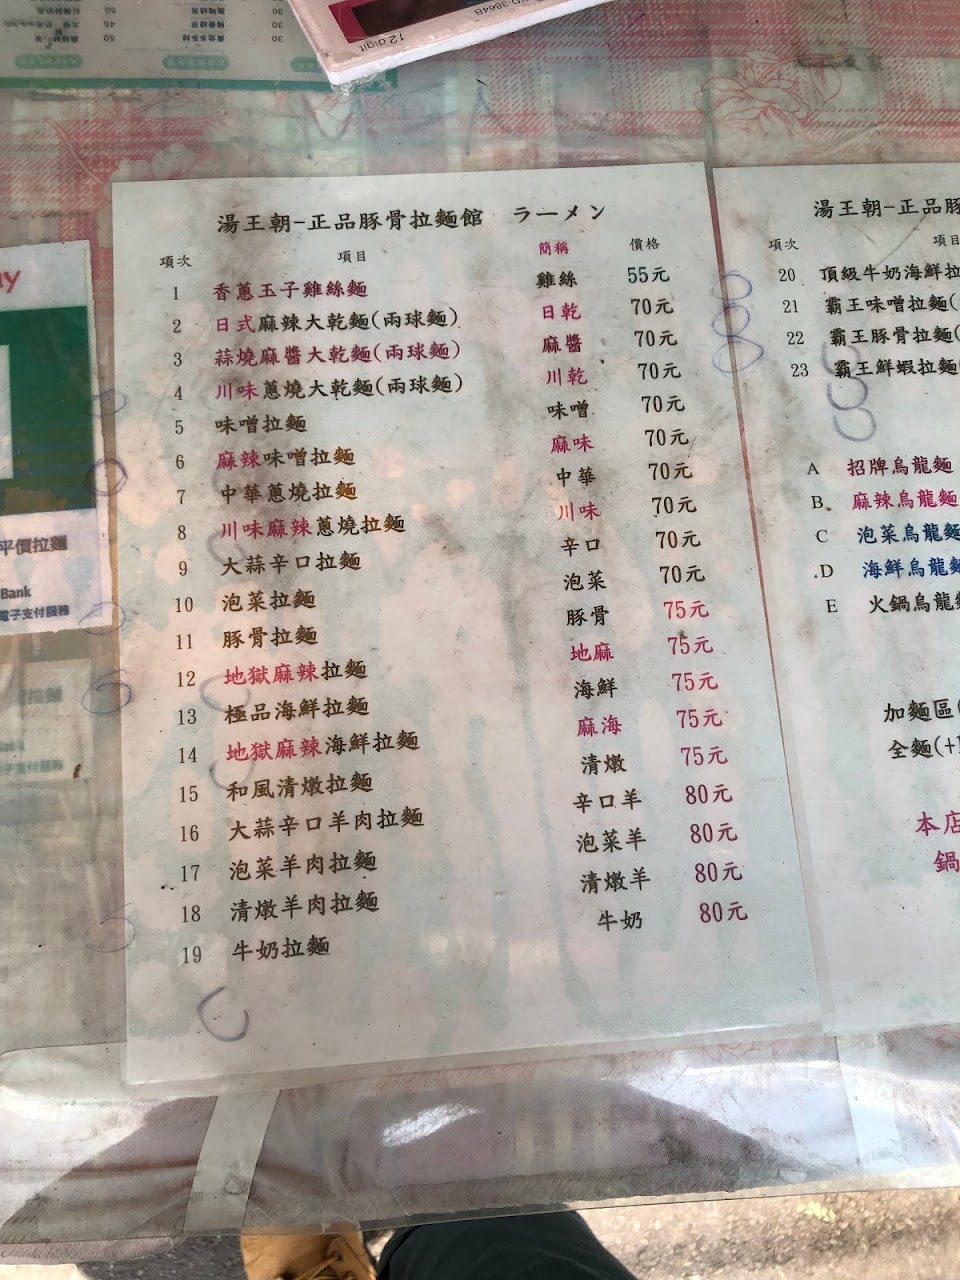 12 digit
湯王朝-正品豚骨拉麵館 ラーメン
項次 項目 簡稱 價格
1 香蔥玉子雞絲麵 雞絲 55元
2 日式麻辣大乾麵(兩球麵) 日乾 70元
3 蒜燒麻醬大乾麵(兩球麵) 麻醬 70元
4 川味蔥燒大乾麵(兩球麵) 川乾 70元
5 味噌拉麵 味噌 70元
6 麻辣味噌拉麵 麻味 70元
7 中華蔥燒拉麵 中華 70元
8 川味麻辣蔥燒拉麵 川味 70元
9 大蒜辛口拉麵 辛口 70元
10 泡菜拉麵 泡菜 70元
11 豚骨拉麵 豚骨 75元
12 地獄麻辣拉麵 地麻 75元
13 極品海鮮拉麵 海鮮 75元
14 地獄麻辣海鮮拉麵 麻海 75元
15 和風清燉拉麵 清燉 75元
16 大蒜辛口羊肉拉麵 辛口羊 80元
17 泡菜羊肉拉麵 泡菜羊 80元
18 清燉羊肉拉麵 清燉羊 80元
19 牛奶拉麵 牛奶 80元
湯王朝-正品豚
項次 項目
20 頂級牛奶海鮮拉
21 霸王味噌拉麵(
22 霸王豚骨拉麵(
23 霸王鮮蝦拉麵
A 招牌烏龍麵
B. 麻辣烏龍麵
C 泡菜烏龍麵
.D 海鮮烏龍麵
E 火鍋烏龍麵
加麵區(
全麵(+
本店
鍋
平價拉麵
Bank
電子支付服務